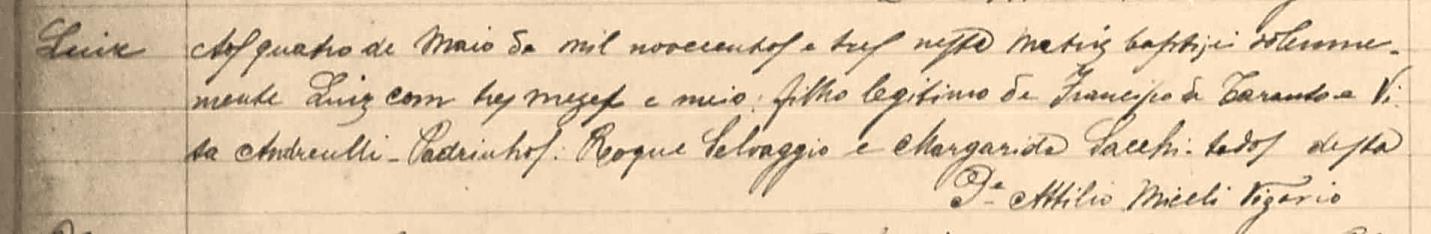 Luiz
Aos quatro de Maio de mil novecentos e tres nesta Matriz baptizei solemne-
mente Luiz com tres mezes e meio, filho legitimo de Francisco de Taranto e Vi-
ta Andreulli - Padrinhos: Roque Selvaggio e Margarida Sacchi - todos desta
Pe. Attilio Miceli Vigario